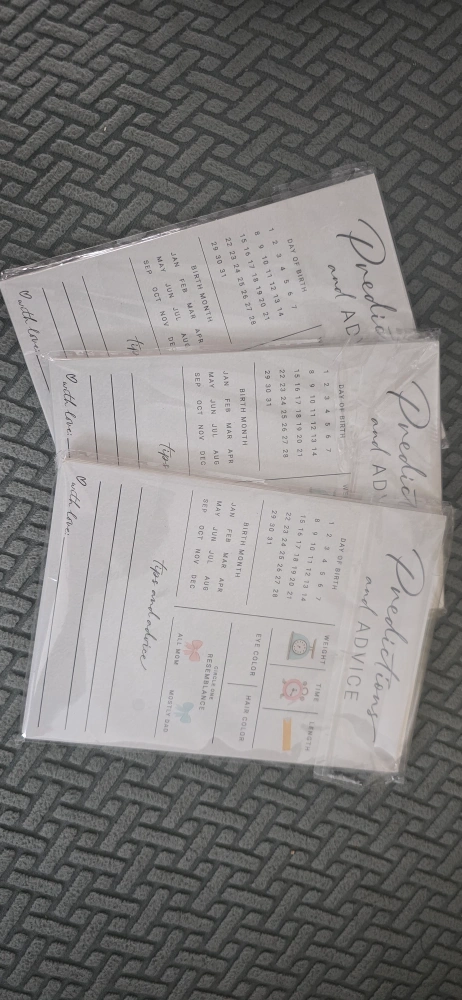 Predic
and AD
DAY OF BIRTH
1 2 3 4 5 6 7
8 9 10 11 12 13 14
15 16 17 18 19 20 21
22 23 24 25 26 27 28
29 30 31
BIRTH MONTH
JAN FEB MAR APR
MAY JUN JUL
SEP OCT NOV DE
tip
with love:
Predic
and ADV
DAY OF BIRTH
1 2 3 4 5 6 7
8 9 10 11 12 13 14
15 16 17 18 19 20 21
22 23 24 25 26 27 28
29 30 31
BIRTH MONTH
JAN FEB MAR APR
MAY JUN JUL AUG
SEP OCT NOV DEC
tips
with love:
Predictions
and ADVICE
DAY OF BIRTH
1 2 3 4 5 6 7
8 9 10 11 12 13 14
15 16 17 18 19 20 21
22 23 24 25 26 27 28
29 30 31
BIRTH MONTH
JAN FEB MAR APR
MAY JUN JUL AUG
SEP OCT NOV DEC
WEIGHT TIME LENGTH
EYE COLOR HAIR COLOR
CIRCLE ONE
RESEMBLANCE
ALL MOM MOSTLY DAD
tips and advice:
with love: